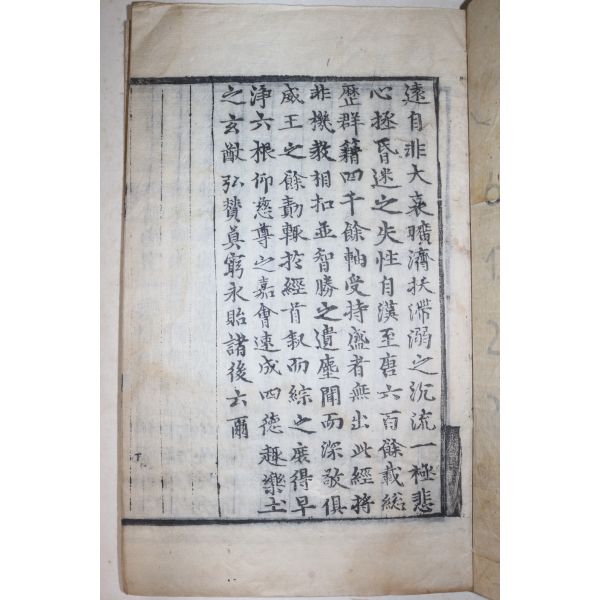 遠自非大哀曠濟扶滯溺之沉流一極悲
心拯昏迷之失性自漢至唐六百餘載総
歷群籍四千餘軸受持盛者無出此經將
非機教相扣並智勝之遺塵聞而深敬俱
威王之餘勣輒扵經首叙而綜之庶得早
淨六根仰慈尊之嘉會速成四德趣樂土
之玄猷弘贊眞窮永貽諸後云爾